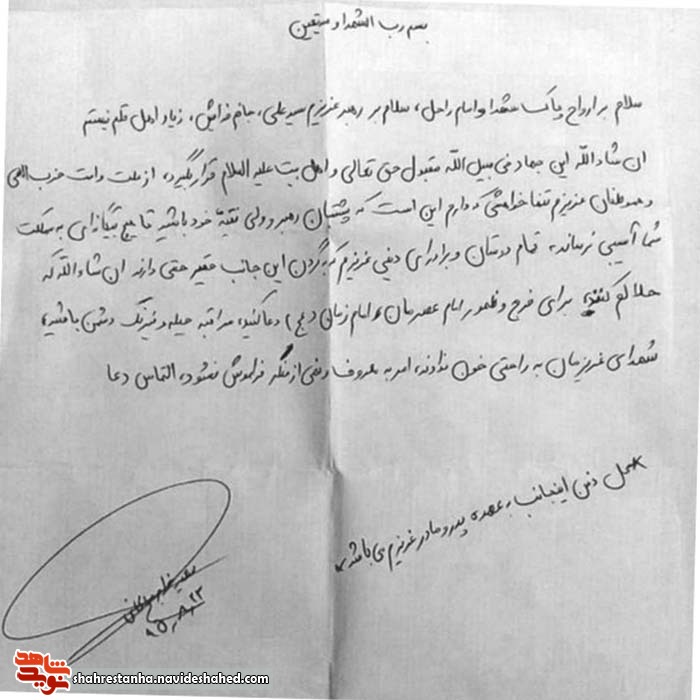 بسم رب الشهدا و صدیقین
سلام بر ارواح پاک شهدا و امام راحل، سلام بر رهبر عزیزم سید علی، جانم فدایش، زیاد اهل قلم نیستم
ان شاء الله این جهاد فی سبیل الله مقبول حق تعالی و اهل بیت علیه السلام قرار بگیرد، از ملت و امت حزب اللهی
و هموطنان عزیزم تنها خواهشی که دارم این است که پشتیبان رهبر و ولی فقیه خود باشید تا هیچ بیگانه‌ای به مملکت
شما آسیبی نرساند، تمام دوستان و برادرای دینی عزیزم که به گردن این جانب حقیر حقی دارند ان شاء الله که
حلالم کنند، برای فرج و ظهور امام عصرمان امام زمان (عج) دعا کنید، مراقب حیله و نیرنگ دشمن باشید،
شهدای عزیزمان به راحتی خون ندادند، امر به معروف و نهی از منکر فراموش نشود، التماس دعا
*محل دفن اینجانب به عهده پدر و مادر عزیزم می باشد*
۹۵
نوید شاهد
shahrestanha.navideshahed.com